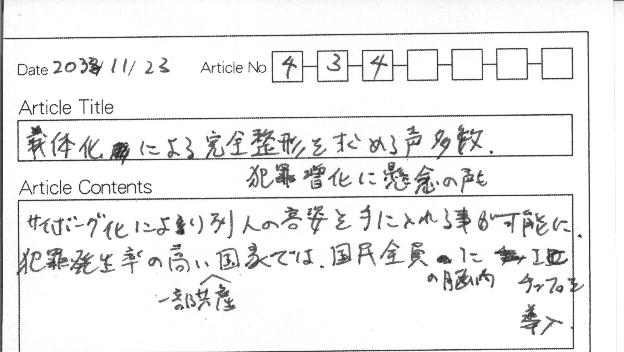 Date 2033/11/23 Article No 4-3-4
Article Title
義体化による完全整形を求める声多数.
犯罪増化に懸念の声も
Article Contents
サイボーグ化により別人の容姿を手に入れる事が可能に.
犯罪発生率の高い一部共産国家では、国民全員の脳内に IC
チップを
導入.